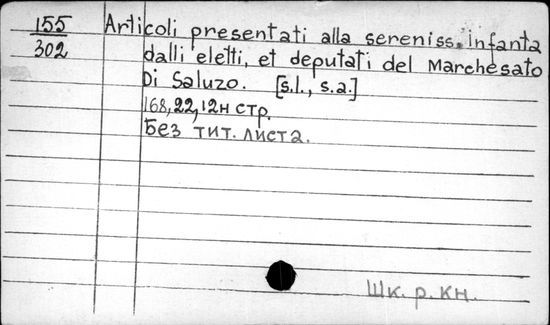 155 Articoli presentati alla sereniss. infanta
302 dalli eletti, et deputati del Marchesato
Di Saluzo. [s.l., s.a.]
168, 22, 12н стр.
Без тит. листа.
Шк. р. кн.